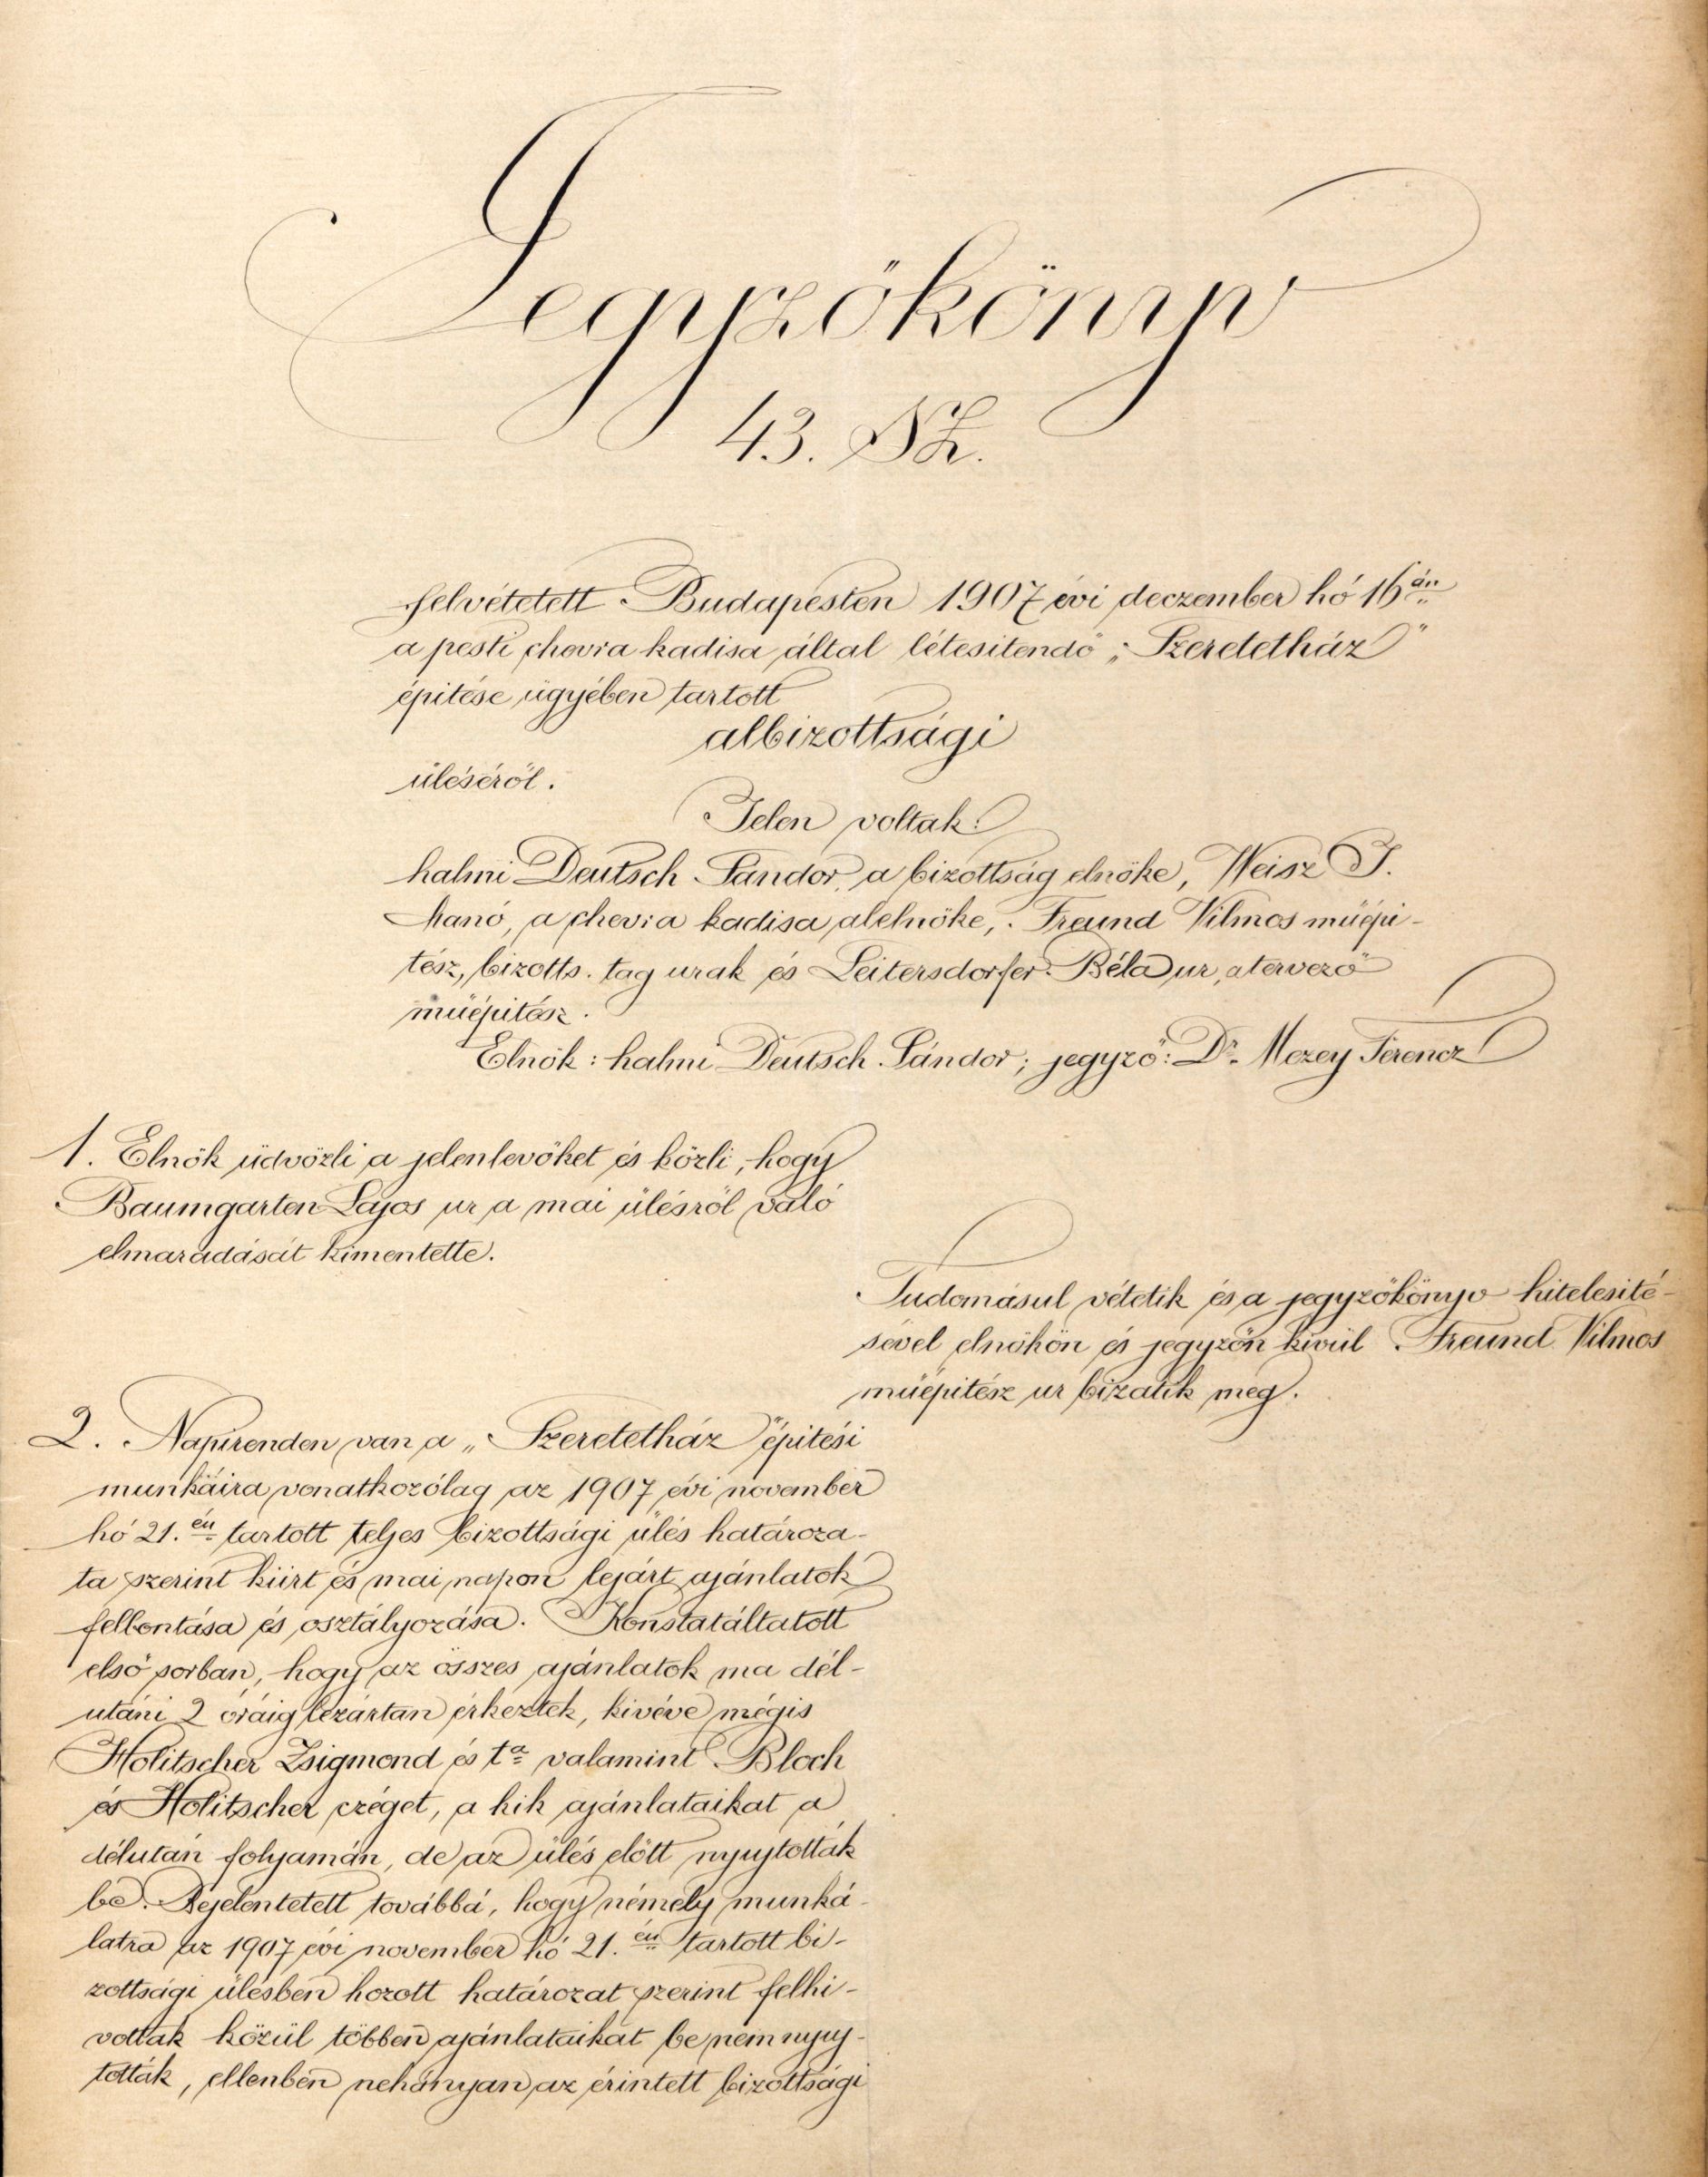 Jegyzőkönyv
43. SZ.
felvétetett Budapesten 1907 évi deczember hó 16án
a pesti chevra kadisa által létesitendő „Szeretetház”
épitése ügyében tartott
albizottsági
üléséről.
Jelen voltak:
halmi Deutsch Sándor, a bizottság elnöke, Weisz J.
Manó, a chevra kadisa alelnöke, Freund Vilmos müépi-
tész, bizotts. tag urak és Leitersdorfer Béla ur, a tervező
müépitész.
Elnök: halmi Deutsch Sándor; jegyző: Dr. Mezey Ferencz
1. Elnök üdvözli a jelenlevőket és közli, hogy
Baumgarten Lajos ur a mai ülésről való
elmaradását kimentette.
Tudomásul vétetik és a jegyzőkönyv hitelesité-
sével elnökön és jegyzőn kivül Freund Vilmos
müépitész ur bizatik meg.
2. Napirenden van a „Szeretetház” épitési
munkáira vonatkozólag az 1907 évi november
hó 21.én tartott teljes bizottsági ülés határoza-
ta szerint kiirt és mai napon lejárt ajánlatok
felbontása és osztályozása. Konstatáltatott
első sorban, hogy az összes ajánlatok ma dél-
utáni 2 óráig lezártan érkeztek, kivéve mégis
Holitscher Zsigmond és ta valamint Bloch
és Holitscher czéget, a kik ajánlataikat a
délután folyamán, de az ülés előtt nyujtották
be. Bejelentetett továbbá, hogy némely munká-
latra az 1907 évi november hó 21.én tartott bi-
zottsági ülésben hozott határozat szerint felhi-
vottak közül többen ajánlataikat be nem nyuj-
tották, ellenben nehányan az érintett bizottsági